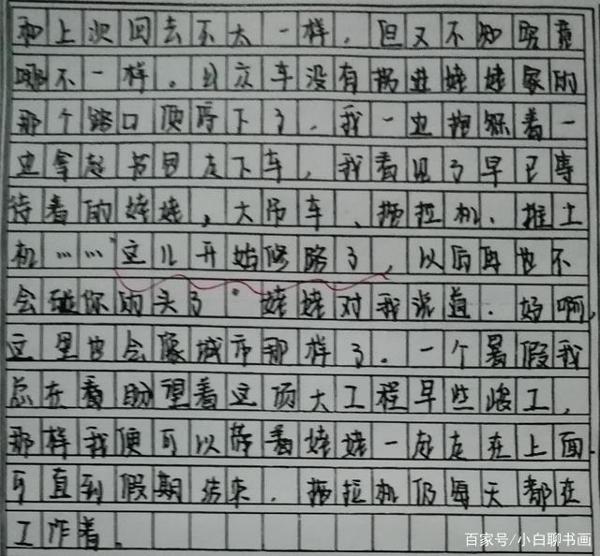 和上次回去不太一样，但又不知究竟
哪不一样。公交车没有拐进姥姥家的
那个路口便停下了，我一边抱怨着一
边拿起书包走下车，我看见了早已等
待着的姥姥，大吊车、拖拉机、推土
机……“这儿开始修路了，以后再也不
会碰你的头了”姥姥对我说道。好啊，
这里也会像城市那样了。一个暑假我
总在看盼望着这项大工程早些竣工，
那样我便可以陪着姥姥一起走在上面。
可直到假期结束，拖拉机仍每天都在
工作着。
百家号/小白聊书画